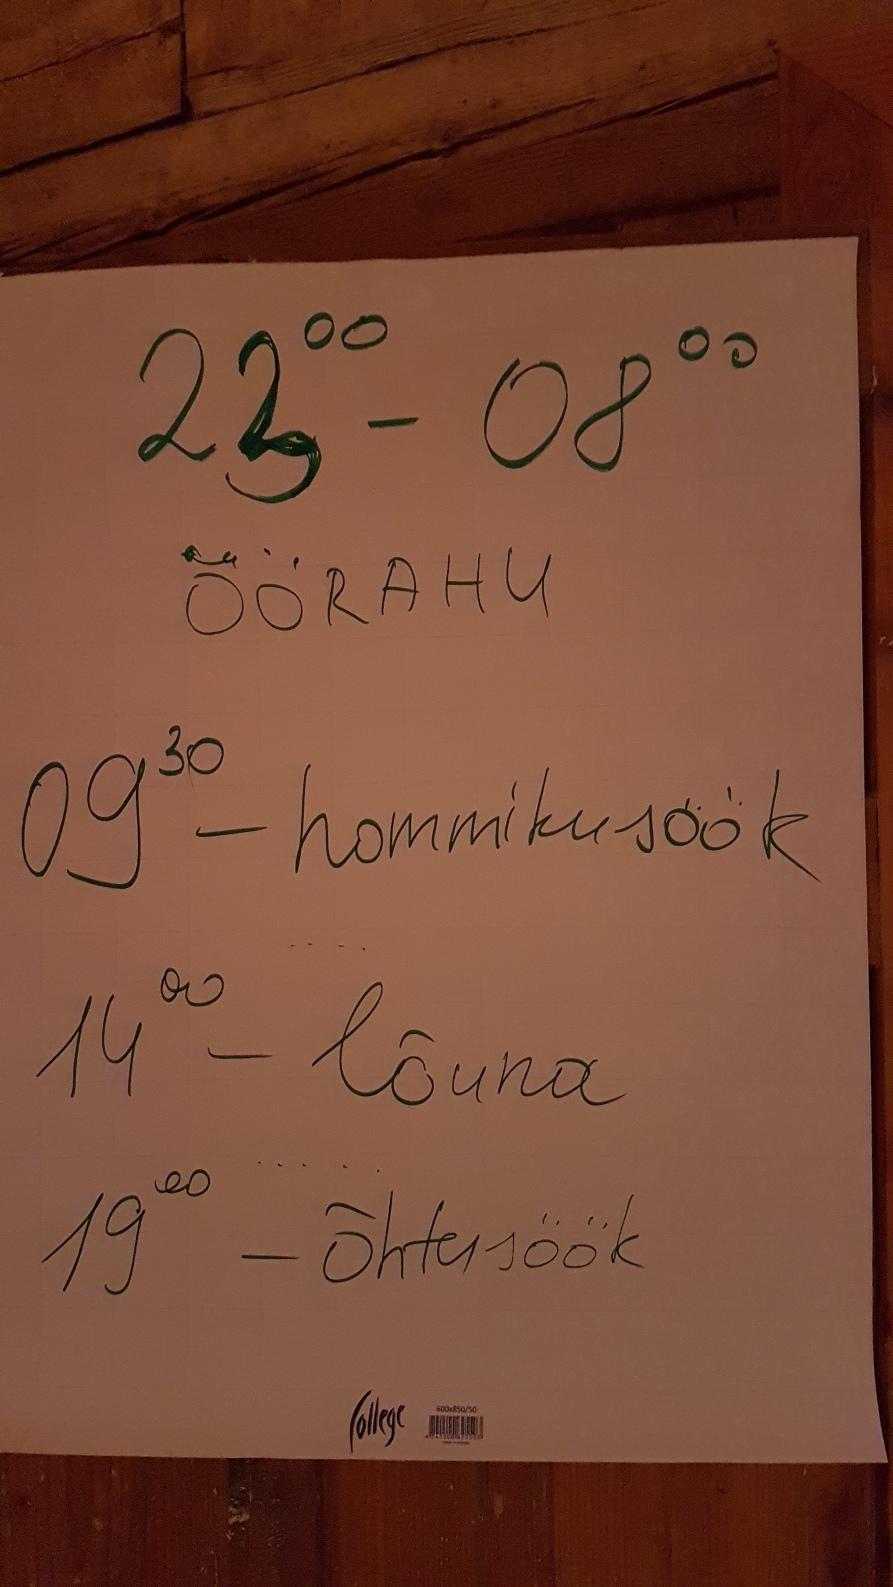 23⁰⁰ - 08⁰⁰
ÖÖRAHU
09³⁰ - hommikusöök
14⁰⁰ - lõuna
19⁰⁰ - õhtusöök
College
600x850/50